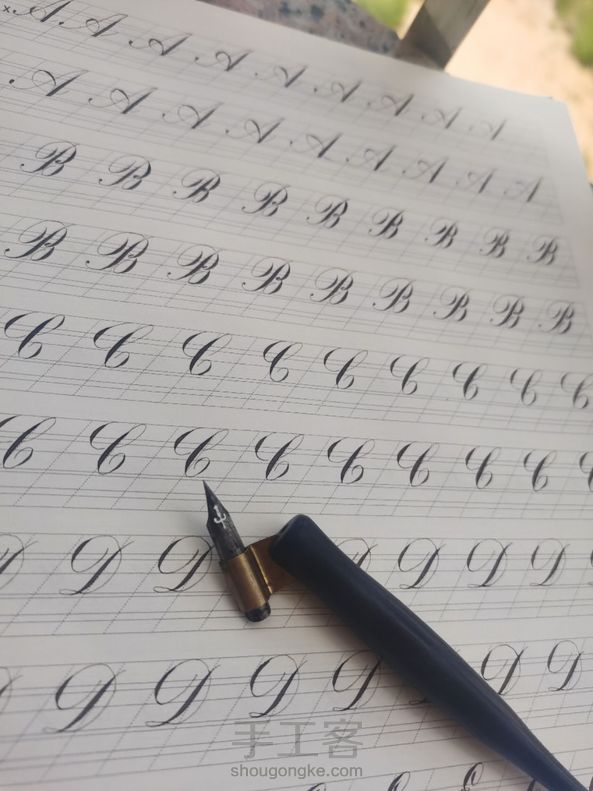 x. A A A A A A A A A
A A A A A A A A A
B B B B B B B B B
B B B B B B B B B
C C C C C C C C C
C C C C C C C C C
D D D D D D D D
D D D D D D
手工客
shougongke.com